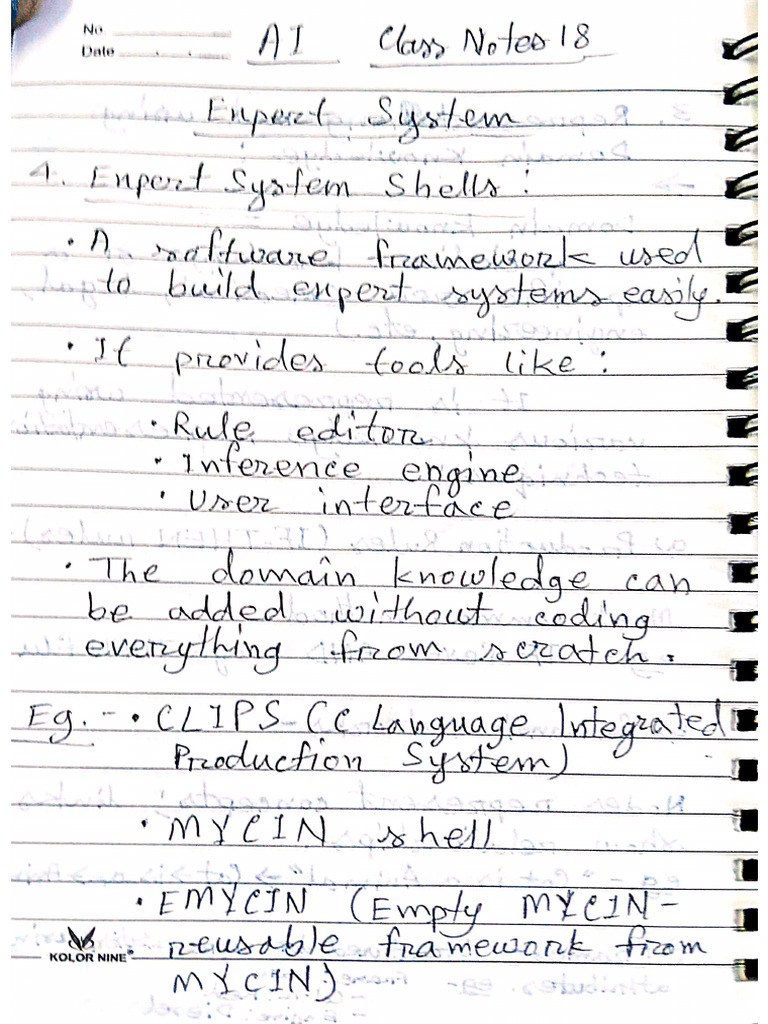 No.
Date
AI Class Notes 18
Expert System
4. Expert System Shells :
• A software framework used
to build expert systems easily.
• It provides tools like :
• Rule editor
• Inference engine
• User interface
• The domain knowledge can
be added without coding
everything from scratch.
Eg. - • CLIPS (C Language Integrated
Production System)
• MYCIN shell
• EMYCIN (Empty MYCIN -
reusable framework from
MYCIN)
KOLOR NINE